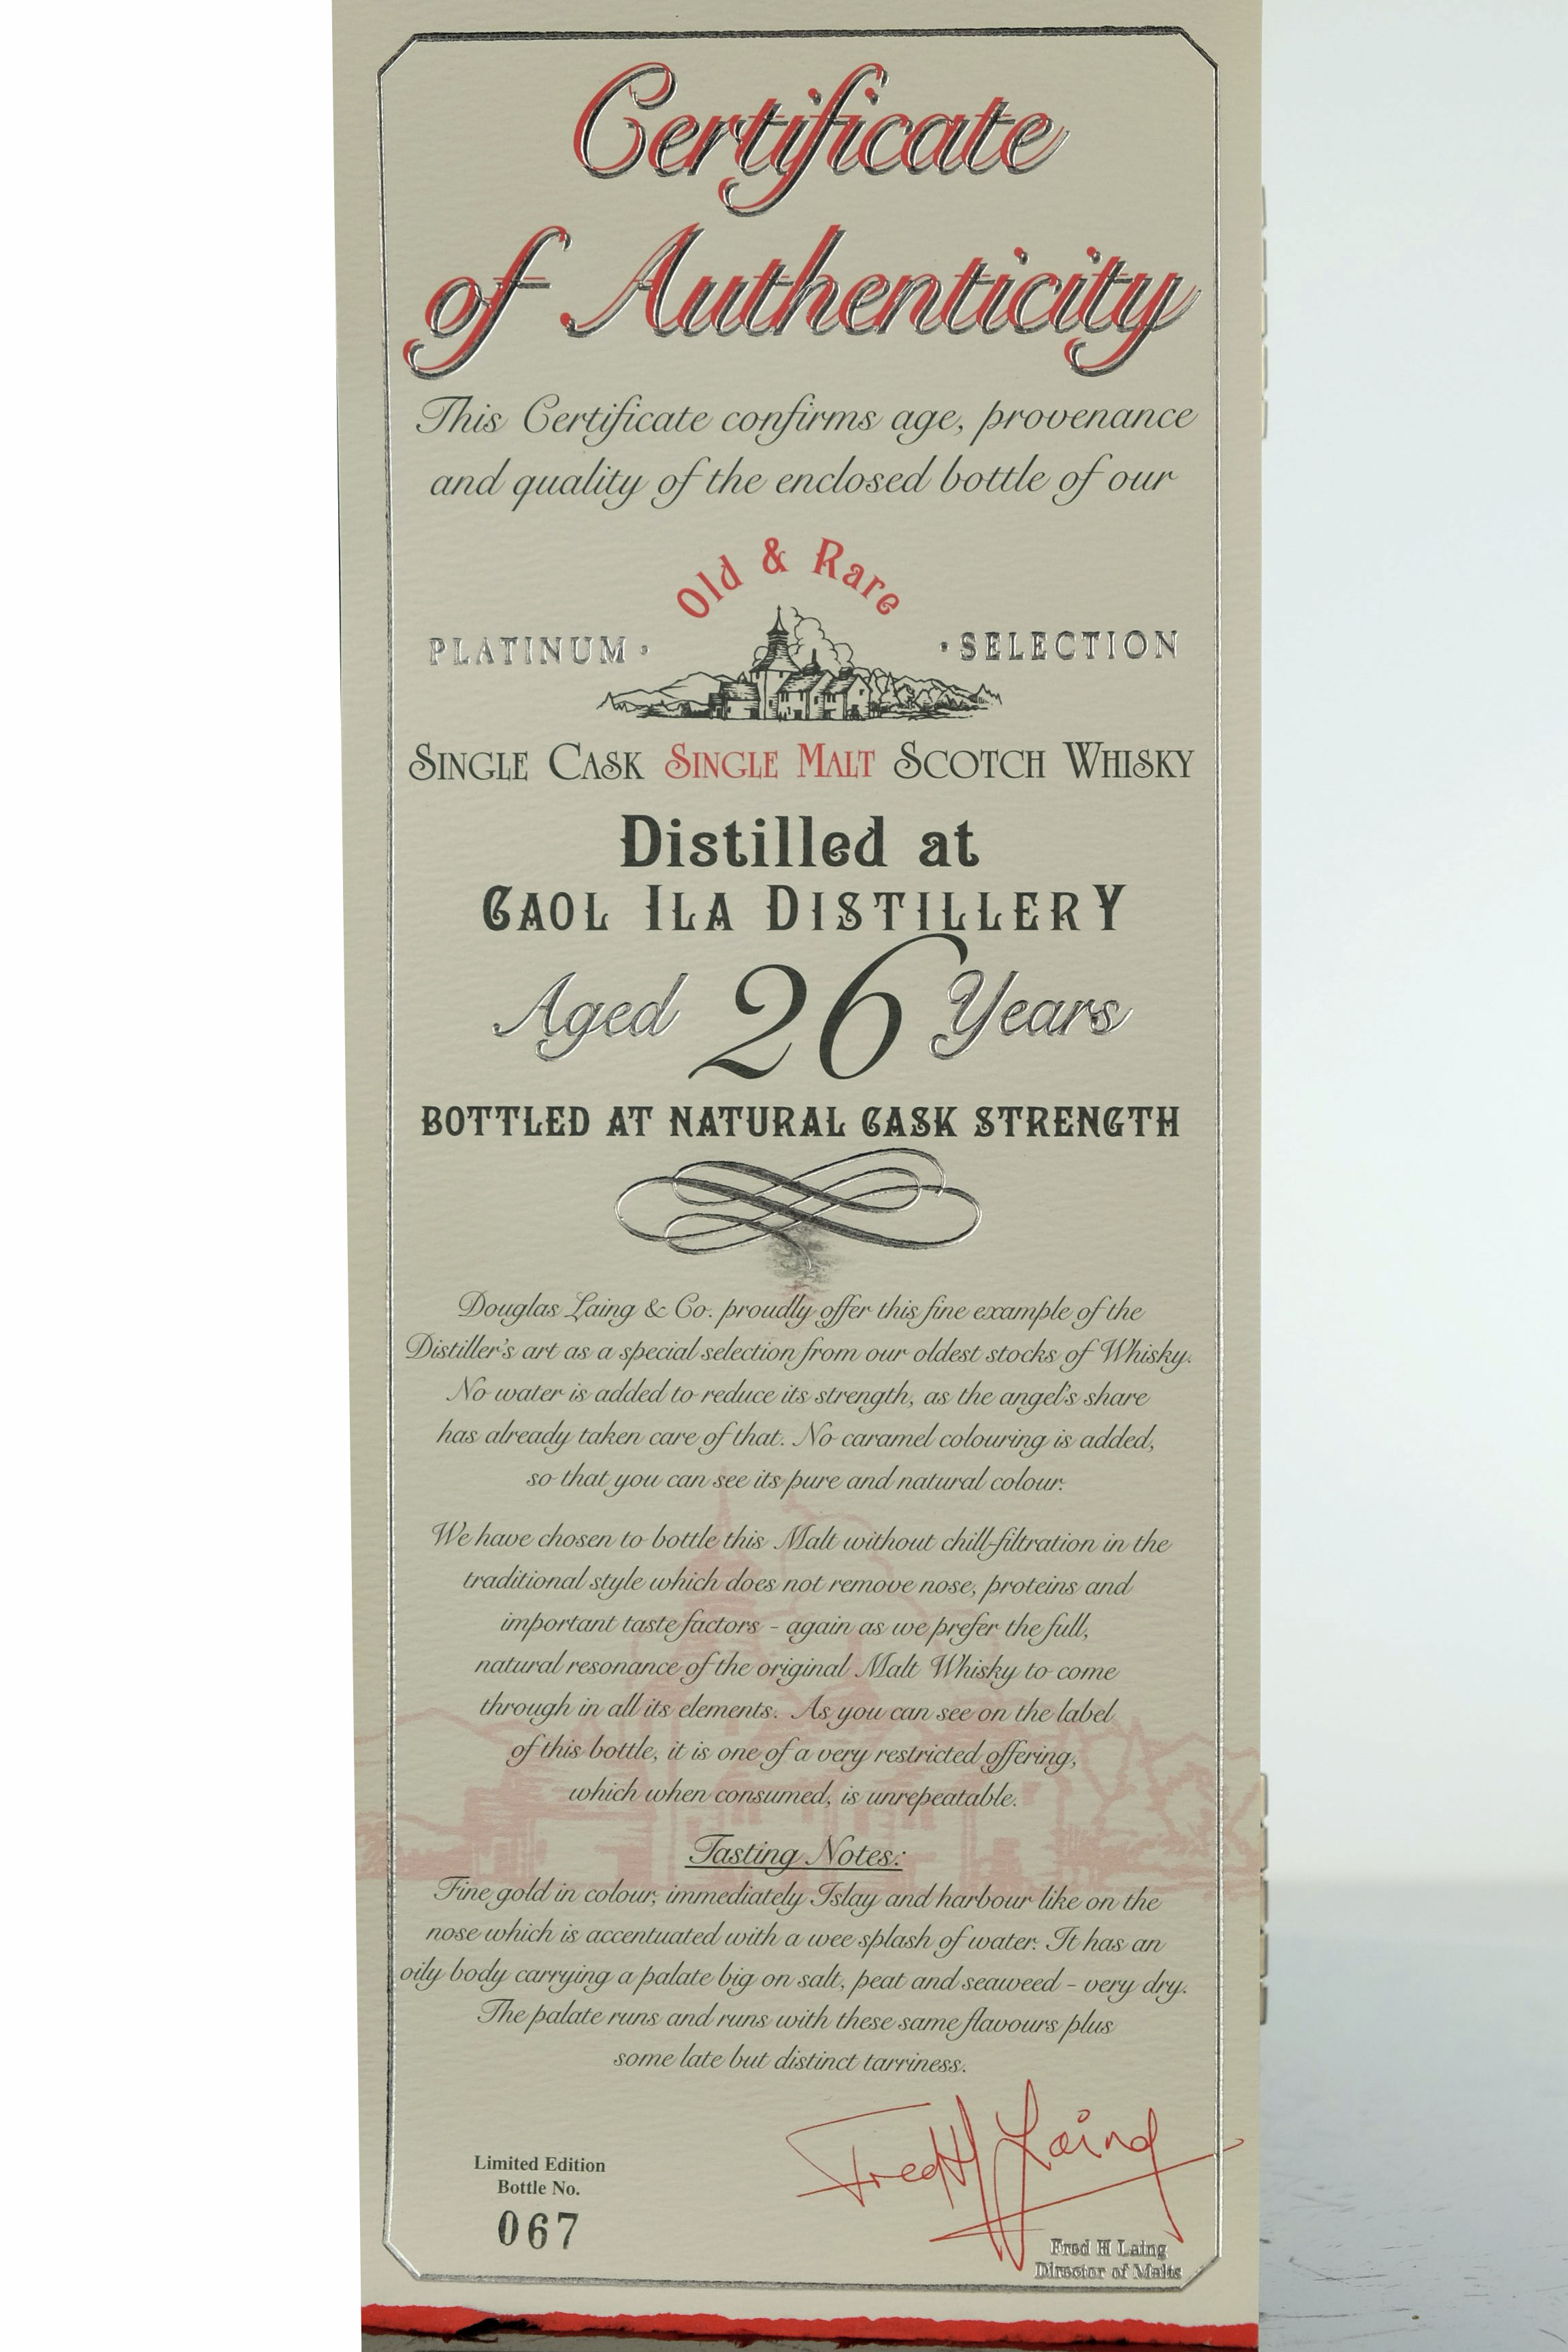 Certificate
of Authenticity
This Certificate confirms age, provenance
and quality of the enclosed bottle of our
Old & Rare
PLATINUM · · SELECTION
SINGLE CASK SINGLE MALT SCOTCH WHISKY
Distilled at
CAOL ILA DISTILLERY
Aged 26 Years
BOTTLED AT NATURAL CASK STRENGTH
Douglas Laing & Co. proudly offer this fine example of the
Distiller's art as a special selection from our oldest stocks of Whisky.
No water is added to reduce its strength, as the angel's share
has already taken care of that. No caramel colouring is added,
so that you can see its pure and natural colour.
We have chosen to bottle this Malt without chill-filtration in the
traditional style which does not remove nose, proteins and
important taste factors - again as we prefer the full,
natural resonance of the original Malt Whisky to come
through in all its elements. As you can see on the label
of this bottle, it is one of a very restricted offering,
which when consumed, is unrepeatable.
Tasting Notes:
Fine gold in colour, immediately Islay and harbour like on the
nose which is accentuated with a wee splash of water. It has an
oily body carrying a palate big on salt, peat and seaweed - very dry.
The palate runs and runs with these same flavours plus
some late but distinct tarriness.
Fred H Laing
Limited Edition
Bottle No.
067
Fred H Laing
Director of Malts